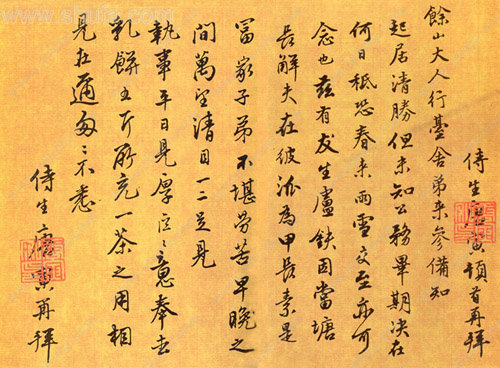 侍生唐寅頓首再拜
餘山大人行臺舍弟来參備知
起居清勝但未知公務畢期決在
何日秪恐春来雨雪交至亦可
念也茲有友生盧鈇因當塘
長解夫在彼泒為甲長素是
冨家子弟不堪勞苦早晚之
間萬望清目一二足見
執事平日見厚區〻之意奉去
乳餅五斤所充一茶之用相
見在邇匆〻不悉
侍生唐寅再拜